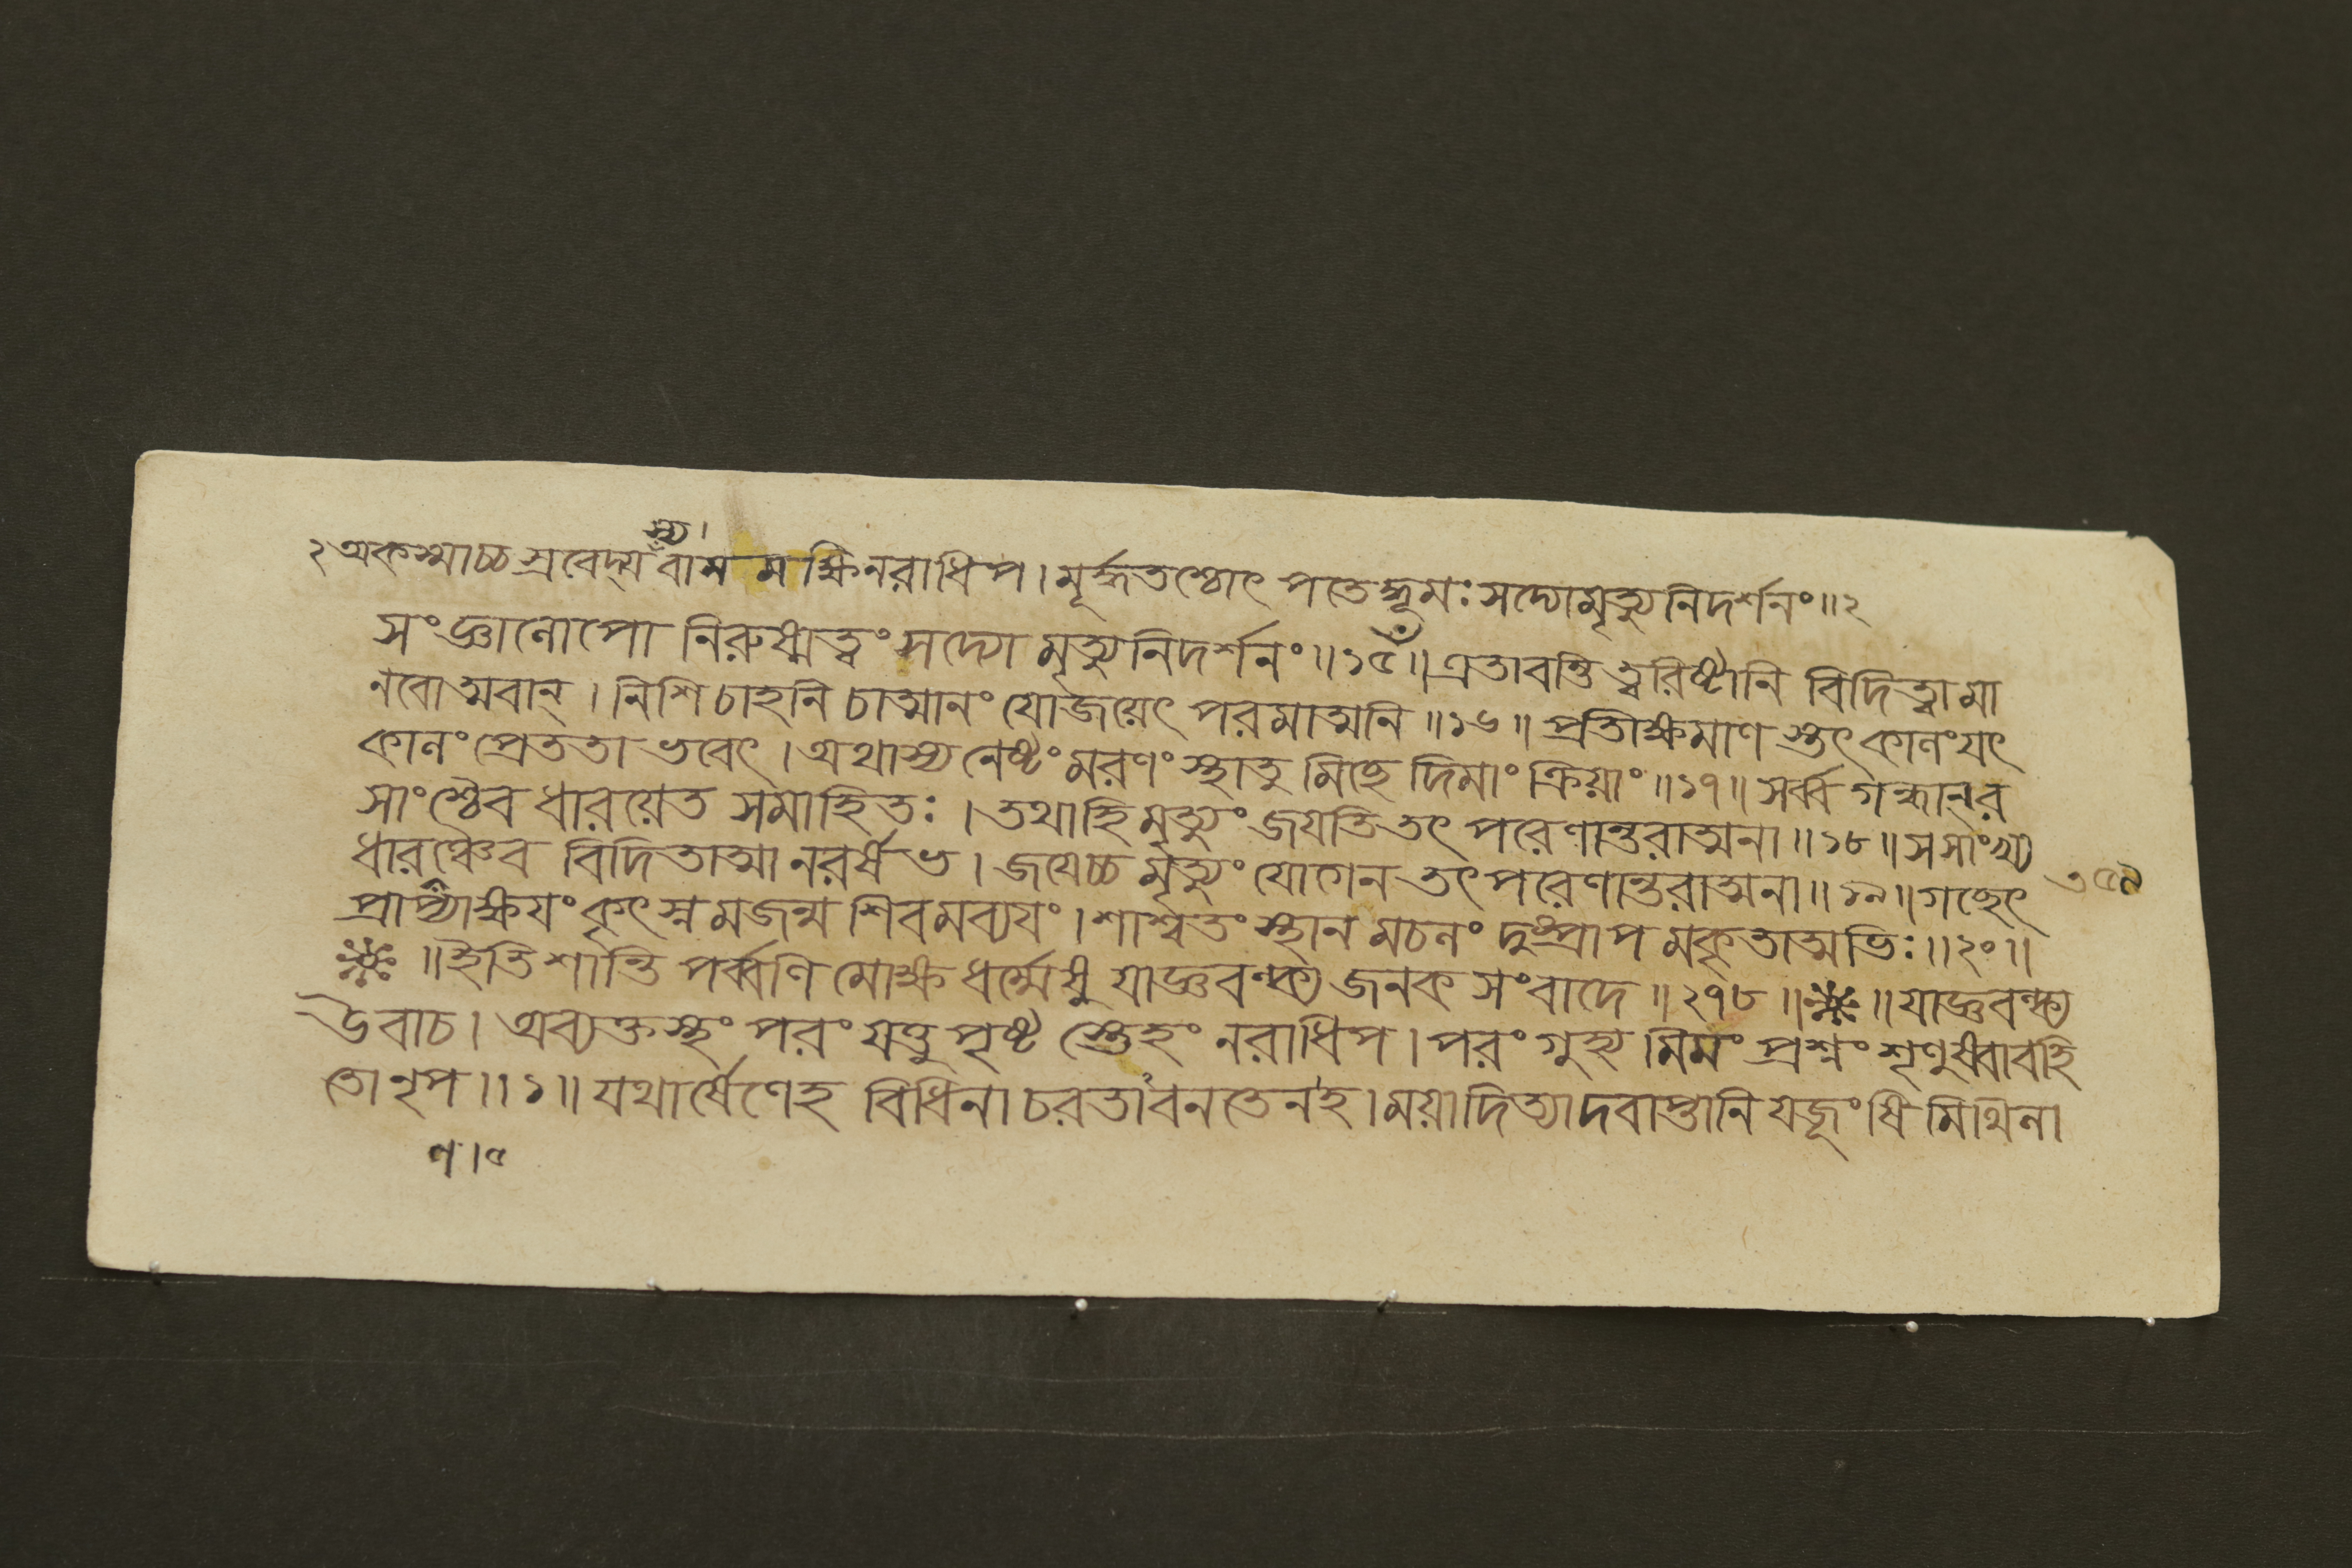 স্য।
২ অকস্মাচ্চ স্রবেদ্য বামমক্ষি নরাধিপ। মূর্দ্ধতশ্চোৎপতেদ্ধূমঃ সদ্যোমৃত্যুনিদর্শনং॥২
সংজ্ঞানোপো নিরুষ্মত্বং সদ্যো মৃত্যুনিদর্শনং॥১৫॥ এতাবন্তি ত্বরিষ্টানি বিদিত্বা মা
নবোত্মবান্। নিশি চাহনি চাত্মানং যোজয়েৎ পরমাত্মনি॥১৬॥ প্রতীক্ষমাণস্তৎকালং যৎ
কালং প্রেততা ভবেৎ। অথাস্য নেষ্টং মরণং স্থাতুমিচ্ছেদিমাং ক্রিয়াং॥১৭॥ সর্ব্বগন্ধান্ র
সাংশ্চৈব ধারয়েত সমাহিতঃ। তথাহি মৃত্যুং জযতি তৎপরেণান্তরাত্মনা॥১৮॥ সসাংখ্য
ধারণঞ্চৈব বিদিতাত্মা নরর্ষভ। জযেচ্চ মৃত্যুং যোগেন তৎপরেণান্তরাত্মনা॥১৯॥ গচ্ছেৎ
৩৫৯
প্রাপ্যাক্ষযং কৃৎস্নমজন্ম শিবমব্যযং। শাশ্বতং স্থানমচলং দুষ্প্রাপমকৃতাত্মভিঃ॥২০॥
॥ ইতি শান্তিপর্ব্বণি মোক্ষধর্ম্মেষু যাজ্ঞবল্ক্য জনক সংবাদে॥২৭৮॥ ॥ যাজ্ঞবল্ক্য
উবাচ। অব্যক্তস্থং পরং যত্তু পৃষ্টস্তেহং নরাধিপ। পরং গুহ্যমিমং প্রশ্নং শৃণুষ্বাবহি
তো নৃপ॥১॥ যথার্ষেণেহ বিধিনা চরতাবনতেন হ। ময়াদিত্যাদবাপ্তানি যজূংষি মিথিলা
ণ।৫